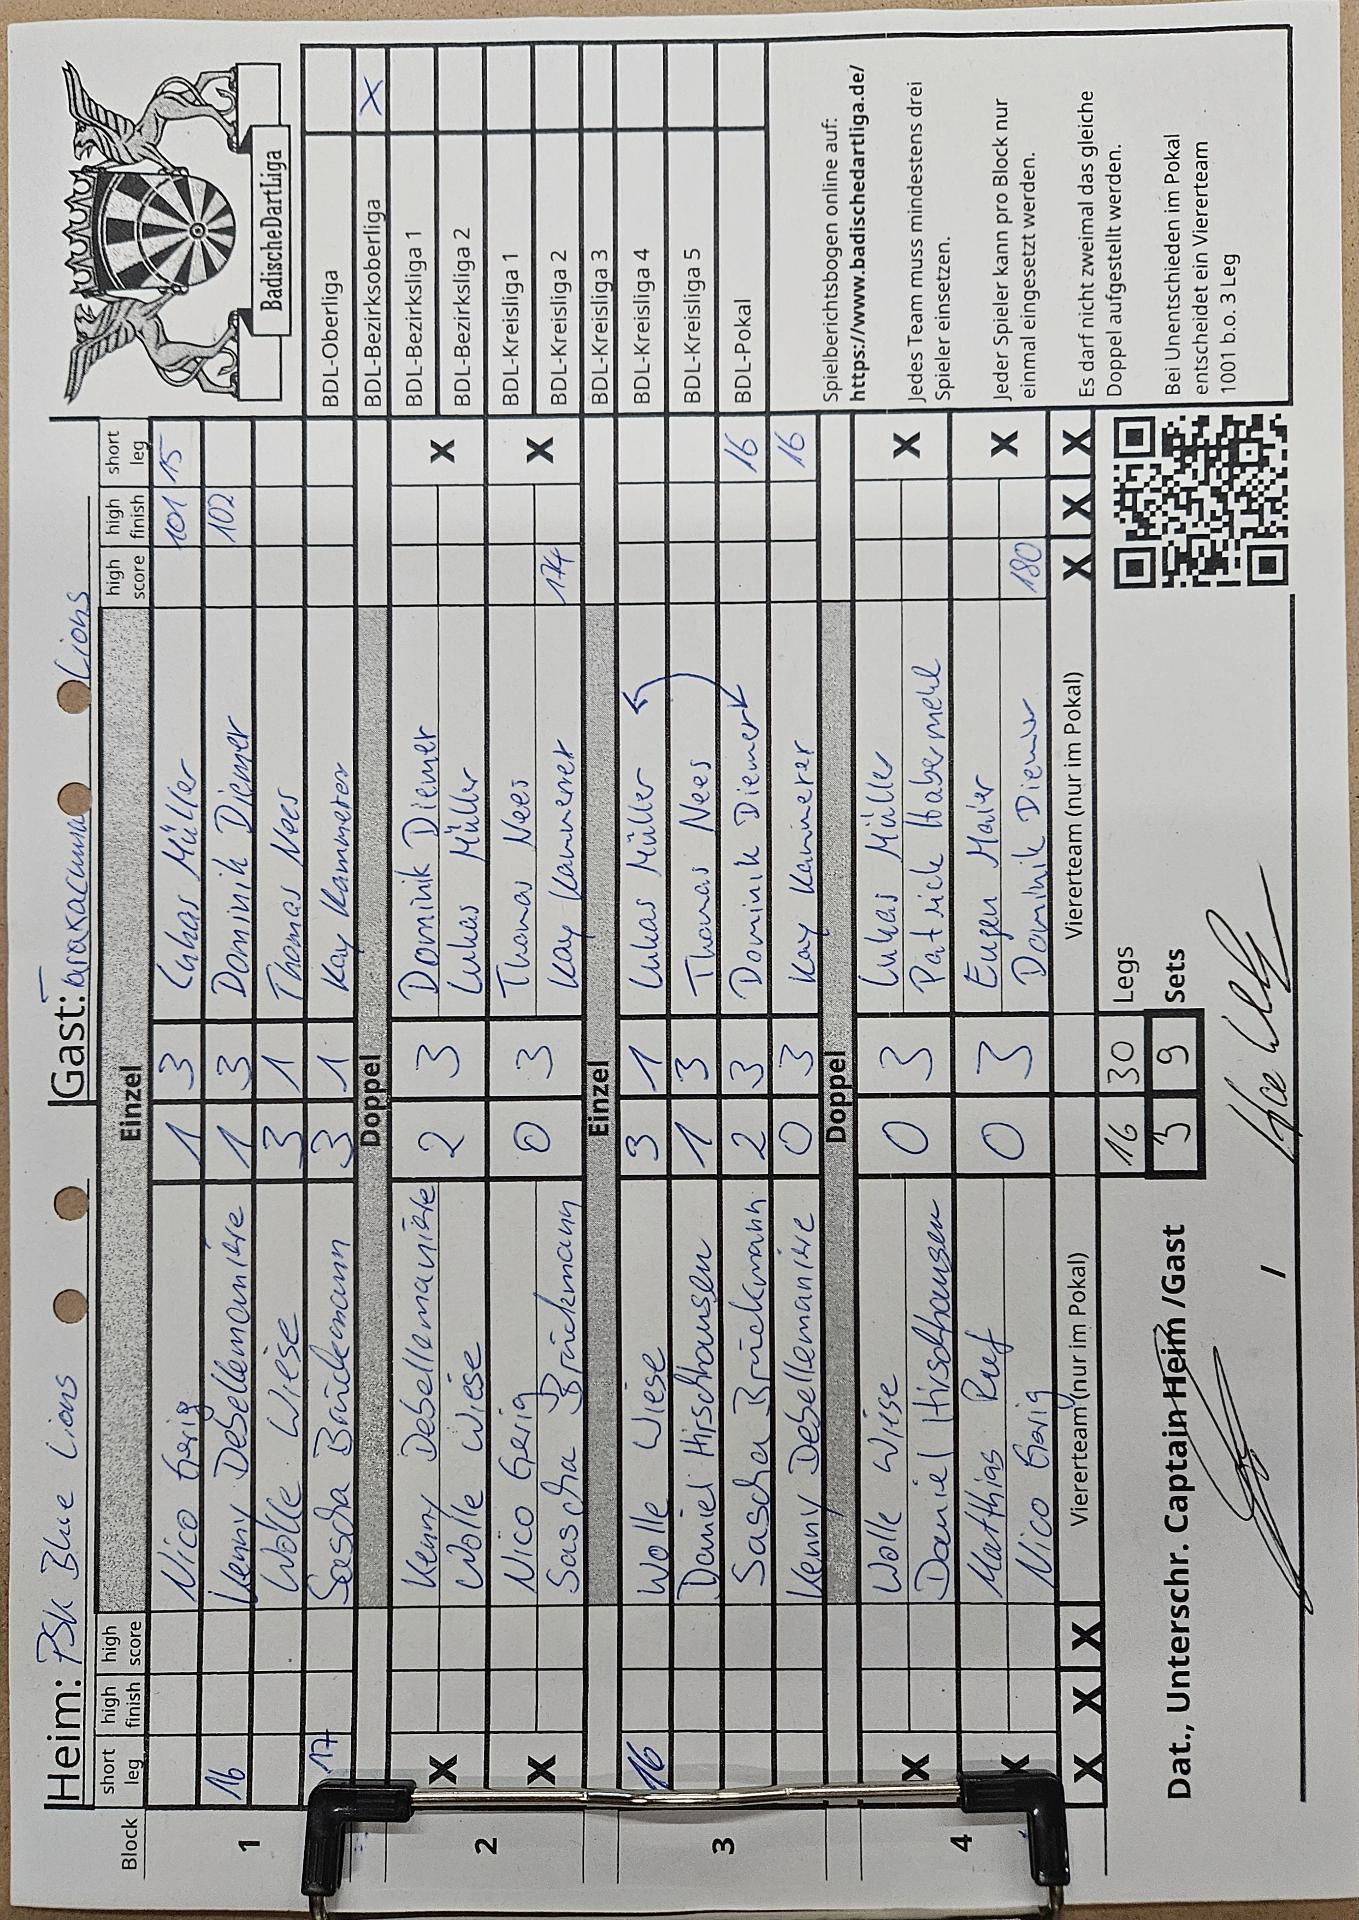 Heim: PSK Blue Lions Gast: Taraxacum Lions
Block short leg high finish high score Einzel high score high finish short leg
1
Nico Gerig 1 3 Lukas Müller 101 15
16 Kenny Debellemanière 1 3 Dominik Diemer 102
Wolle Wiese 3 1 Thomas Nees
17 Sascha Brückmann 3 1 Kay Kammerer
Doppel
2
X Kenny Debellemanière 2 3 Dominik Diemer X
Wolle Wiese Lukas Müller
X Nico Gerig 0 3 Thomas Nees X
Sascha Brückmann Kay Kammerer 174
Einzel
3
16 Wolle Wiese 3 1 Lukas Müller
Daniel Hirschhausen 1 3 Thomas Nees
Sascha Brückmann 2 3 Dominik Diemer 16
Kenny Debellemanière 0 3 Kay Kammerer 16
Doppel
4
X Wolle Wiese 0 3 Lukas Müller X
Daniel Hirschhausen Patrick Habermehl
X Matthias Ruf 0 3 Eugen Maier X
Nico Gerig Dominik Diemer 180
X X X Viererteam (nur im Pokal) Viererteam (nur im Pokal) X X X
16 30 Legs
3 9 Sets
Dat., Unterschr. Captain Heim /Gast
/
BadischeDartLiga
BDL-Oberliga
BDL-Bezirksoberliga X
BDL-Bezirksliga 1
BDL-Bezirksliga 2
BDL-Kreisliga 1
BDL-Kreisliga 2
BDL-Kreisliga 3
BDL-Kreisliga 4
BDL-Kreisliga 5
BDL-Pokal
Spielberichtsbogen online auf:
https://www.badischedartliga.de/
Jedes Team muss mindestens drei
Spieler einsetzen.
Jeder Spieler kann pro Block nur
einmal eingesetzt werden.
Es darf nicht zweimal das gleiche
Doppel aufgestellt werden.
Bei Unentschieden im Pokal
entscheidet ein Viererteam
1001 b.o. 3 Leg